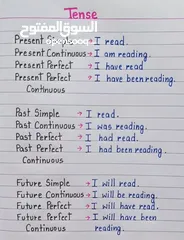 Tense
السوق المفتوح
opensooq.com
Present Simple → I read.
Present Continuous → I am reading.
Present Perfect → I have read
Present Perfect → I have been reading.
Continuous
Past Simple → I read.
Past Continuous → I was reading.
Past Perfect → I had read.
Past Perfect → I had been reading.
Continuous
Future Simple → I will read.
Future Continuous → I will be reading.
Future Perfect → I will have read.
Future Perfect → I will have been
Continuous reading.